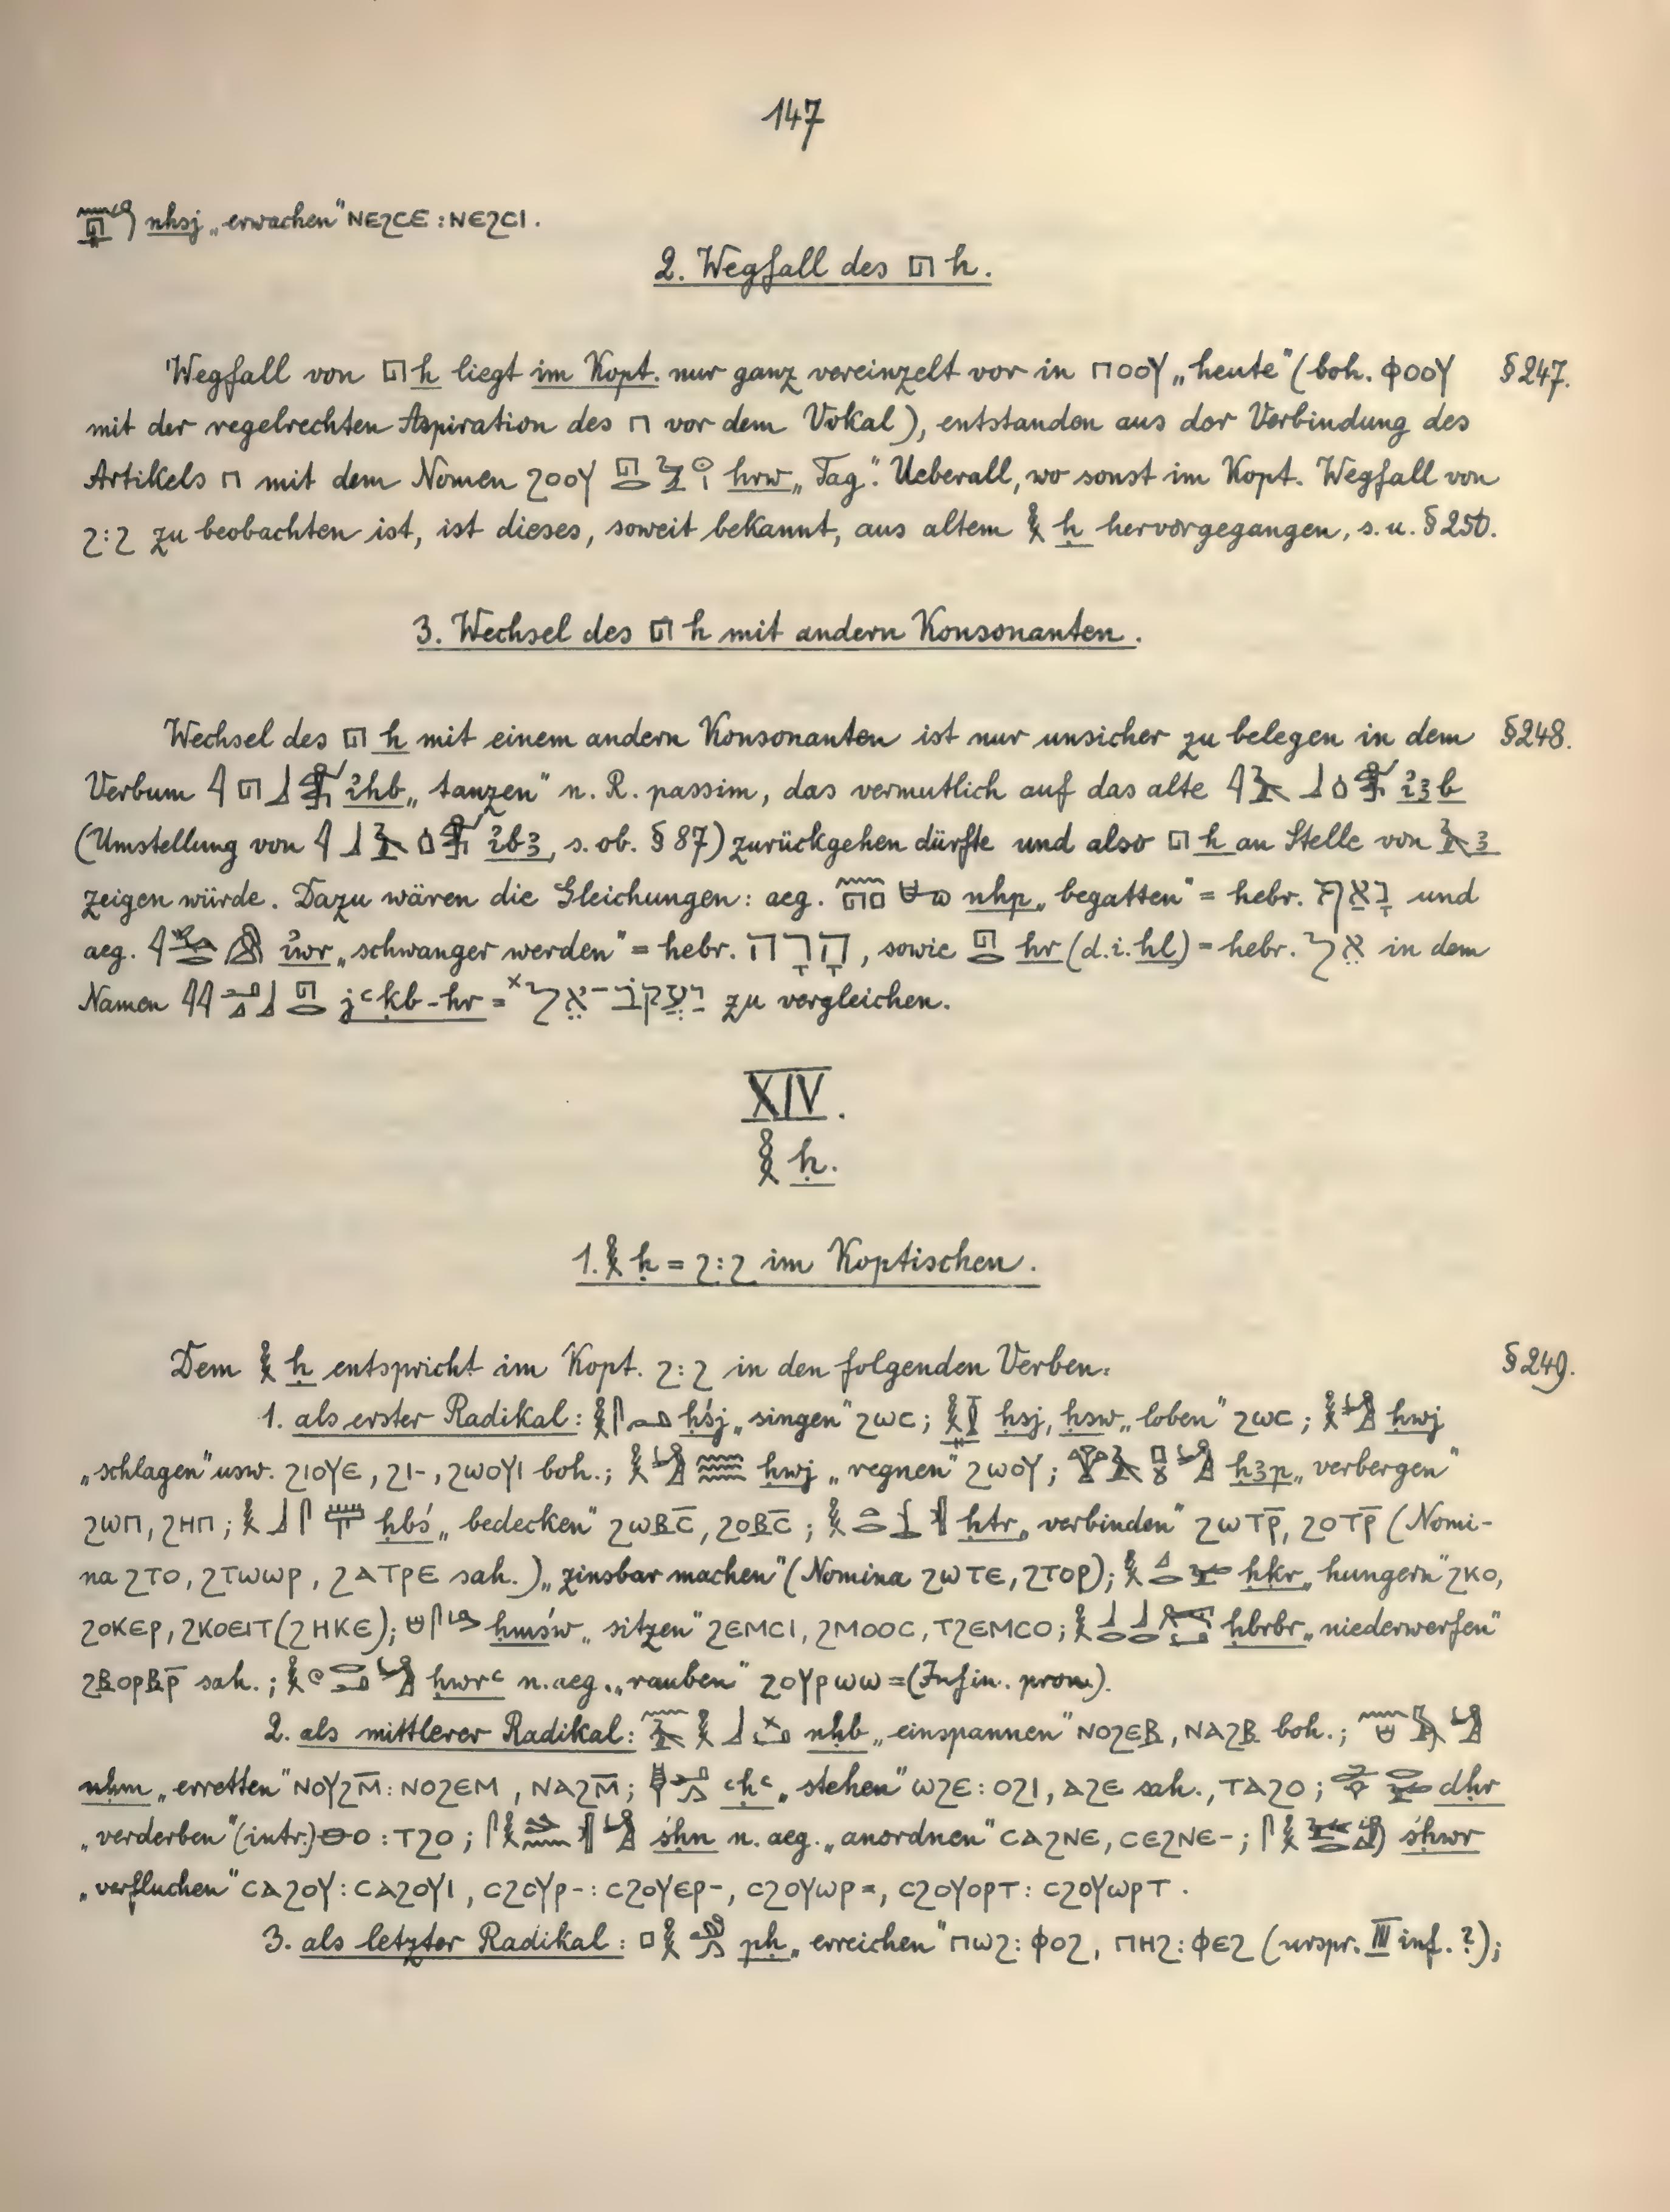 147
nhsj „erwachen“ ⲚⲈϨⲤⲈ : ⲚⲈϨⲤⲒ.
2. Wegfall des 𓉔 h.
Wegfall von 𓉔 h liegt im Kopt. nur ganz vereinzelt vor in ⲠⲞⲞⲨ „heute“ (boh. ⲪⲞⲞⲨ §247.
mit der regelrechten Aspiration des Ⲡ vor dem Vokal), entstanden aus der Verbindung des
Artikels Ⲡ mit dem Nomen ϨⲞⲞⲨ hrw „Tag“. Ueberall, wo sonst im Kopt. Wegfall von
Ϩ:Ϩ zu beobachten ist, ist dieses, soweit bekannt, aus altem 𓎛 ḥ hervorgegangen, s. u. §250.
3. Wechsel des 𓉔 h mit andern Konsonanten.
Wechsel des 𓉔 h mit einem andern Konsonanten ist nur unsicher zu belegen in dem §248.
Verbum ỉhb „tanzen“ n. R. passim, das vermutlich auf das alte ỉꜣb
(Umstellung von ỉbꜣ, s. ob. §87) zurückgehen dürfte und also 𓉔 h an Stelle von 𓄿 ꜣ
zeigen würde. Dazu wären die Gleichungen: aeg. nhp „begatten“ = hebr. נָאַף und
aeg. ỉwr „schwanger werden“ = hebr. הָרָה, sowie hr (d.i. hl) = hebr. אֵל in dem
Namen jꜥḳb-hr = ˣיַעֲקֹב־אֵל zu vergleichen.
XIV.
𓎛 ḥ.
1. 𓎛 ḥ = Ϩ:Ϩ im Koptischen.
Dem 𓎛 ḥ entspricht im Kopt. Ϩ:Ϩ in den folgenden Verben: §249.
1. als erster Radikal: ḥśj „singen“ ϨⲰⲤ; ḥsj, ḥsw „loben“ ϨⲰⲤ; ḥwj
„schlagen“ usw. ϨⲒⲞⲨⲈ, ϨⲒ-, ϨⲰⲞⲨⲒ boh.; ḥwj „regnen“ ϨⲰⲞⲨ; ḥꜣp „verbergen“
ϨⲰⲠ, ϨⲎⲠ; ḥbś „bedecken“ ϨⲰⲂⲤ̄, ϨⲞⲂⲤ̄; ḥtr „verbinden“ ϨⲰⲦⲢ̄, ϨⲞⲦⲢ̄ (Nomi-
na ϨⲦⲞ, ϨⲦⲰⲰⲢ, ϨⲀⲦⲢⲈ sah.) „zinsbar machen“ (Nomina ϨⲰⲦⲈ, ϨⲦⲞⲢ); ḥḳr „hungern“ ϨⲔⲞ,
ϨⲞⲔⲈⲢ, ϨⲔⲞⲈⲒⲦ (ϨⲎⲔⲈ); ḥmśw „sitzen“ ϨⲈⲘⲤⲒ, ϨⲘⲞⲞⲤ, ⲦϨⲈⲘⲤⲞ; ḥbrbr „niederwerfen“
ϨⲂⲞⲢⲂⲢ̄ sah.; ḥwrꜥ n. aeg. „rauben“ ϨⲞⲨⲢⲰⲰ= (Infin. pron.).
2. als mittlerer Radikal: nḥb „einspannen“ ⲚⲞϨⲈⲂ, ⲚⲀϨⲂ boh.;
nḥm „erretten“ ⲚⲞⲨϨⲘ̄ : ⲚⲞϨⲈⲘ, ⲚⲀϨⲘ̄; ꜥḥꜥ „stehen“ ⲰϨⲈ : ⲞϨⲒ, ⲀϨⲈ sah., ⲦⲀϨⲞ; dḥr
„verderben“ (intr.) ⲐⲞ : ⲦϨⲞ; śḥn n. aeg. „anordnen“ ⲤⲀϨⲚⲈ, ⲤⲈϨⲚⲈ-; śḥwr
„verfluchen“ ⲤⲀϨⲞⲨ : ⲤⲀϨⲞⲨⲒ, ⲤϨⲞⲨⲢ- : ⲤϨⲞⲨⲈⲢ-, ⲤϨⲞⲨⲰⲢ=, ⲤϨⲞⲨⲞⲢⲦ : ⲤϨⲞⲨⲰⲢⲦ.
3. als letzter Radikal: pḥ „erreichen“ ⲠⲰϨ : ⲪⲞϨ, ⲠⲎϨ : ⲪⲈϨ (urspr. III inf.?);